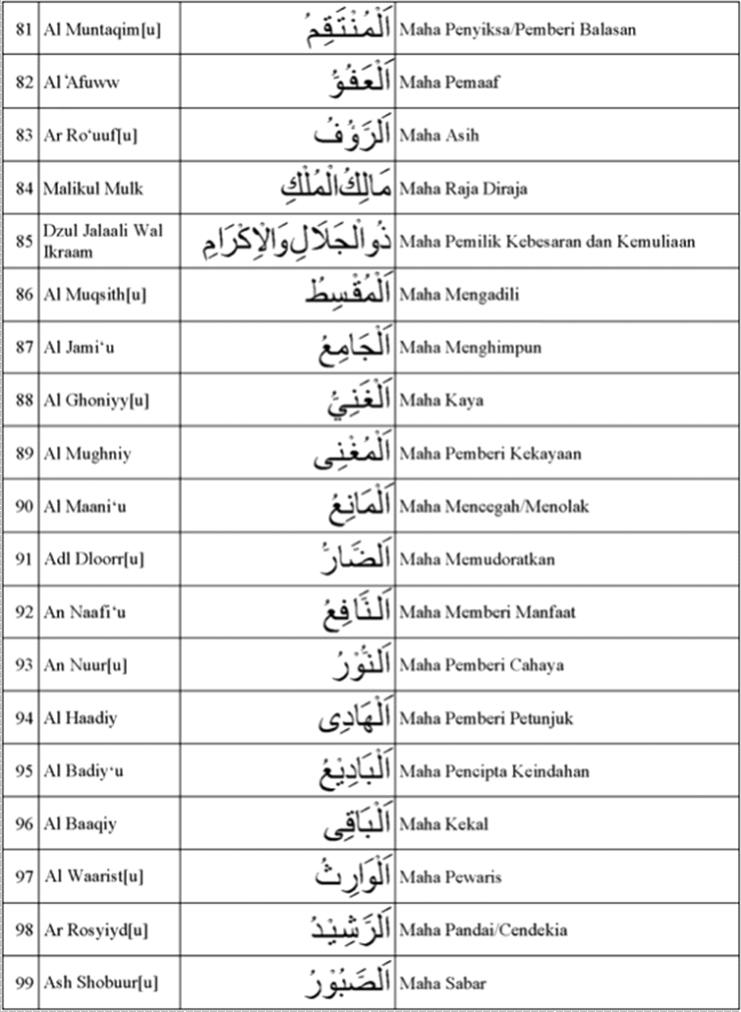 81 Al Muntaqim[u] اَلْمُنْتَقِمُ Maha Penyiksa/Pemberi Balasan
82 Al ‘Afuww اَلْعَفُوُّ Maha Pemaaf
83 Ar Ro‘uuf[u] اَلرَّؤُفُ Maha Asih
84 Malikul Mulk مَالِكُ الْمُلْكِ Maha Raja Diraja
85 Dzul Jalaali Wal Ikraam ذُوالْجَلَالِ وَالْاِكْرَامِ Maha Pemilik Kebesaran dan Kemuliaan
86 Al Muqsith[u] اَلْمُقْسِطُ Maha Mengadili
87 Al Jami‘u اَلْجَامِعُ Maha Menghimpun
88 Al Ghoniyy[u] اَلْغَنِيُّ Maha Kaya
89 Al Mughniy اَلْمُغْنِى Maha Pemberi Kekayaan
90 Al Maani‘u اَلْمَانِعُ Maha Mencegah/Menolak
91 Adl Dloorr[u] اَلضَّارُّ Maha Memudoratkan
92 An Naafi‘u اَلنَّافِعُ Maha Memberi Manfaat
93 An Nuur[u] اَلنُّوْرُ Maha Pemberi Cahaya
94 Al Haadiy اَلْهَادِى Maha Pemberi Petunjuk
95 Al Badiy‘u اَلْبَادِيْعُ Maha Pencipta Keindahan
96 Al Baaqiy اَلْبَاقِى Maha Kekal
97 Al Waarist[u] اَلْوَارِثُ Maha Pewaris
98 Ar Rosyiyd[u] اَلرَّشِيْدُ Maha Pandai/Cendekia
99 Ash Shobuur[u] اَلصَّبُوْرُ Maha Sabar